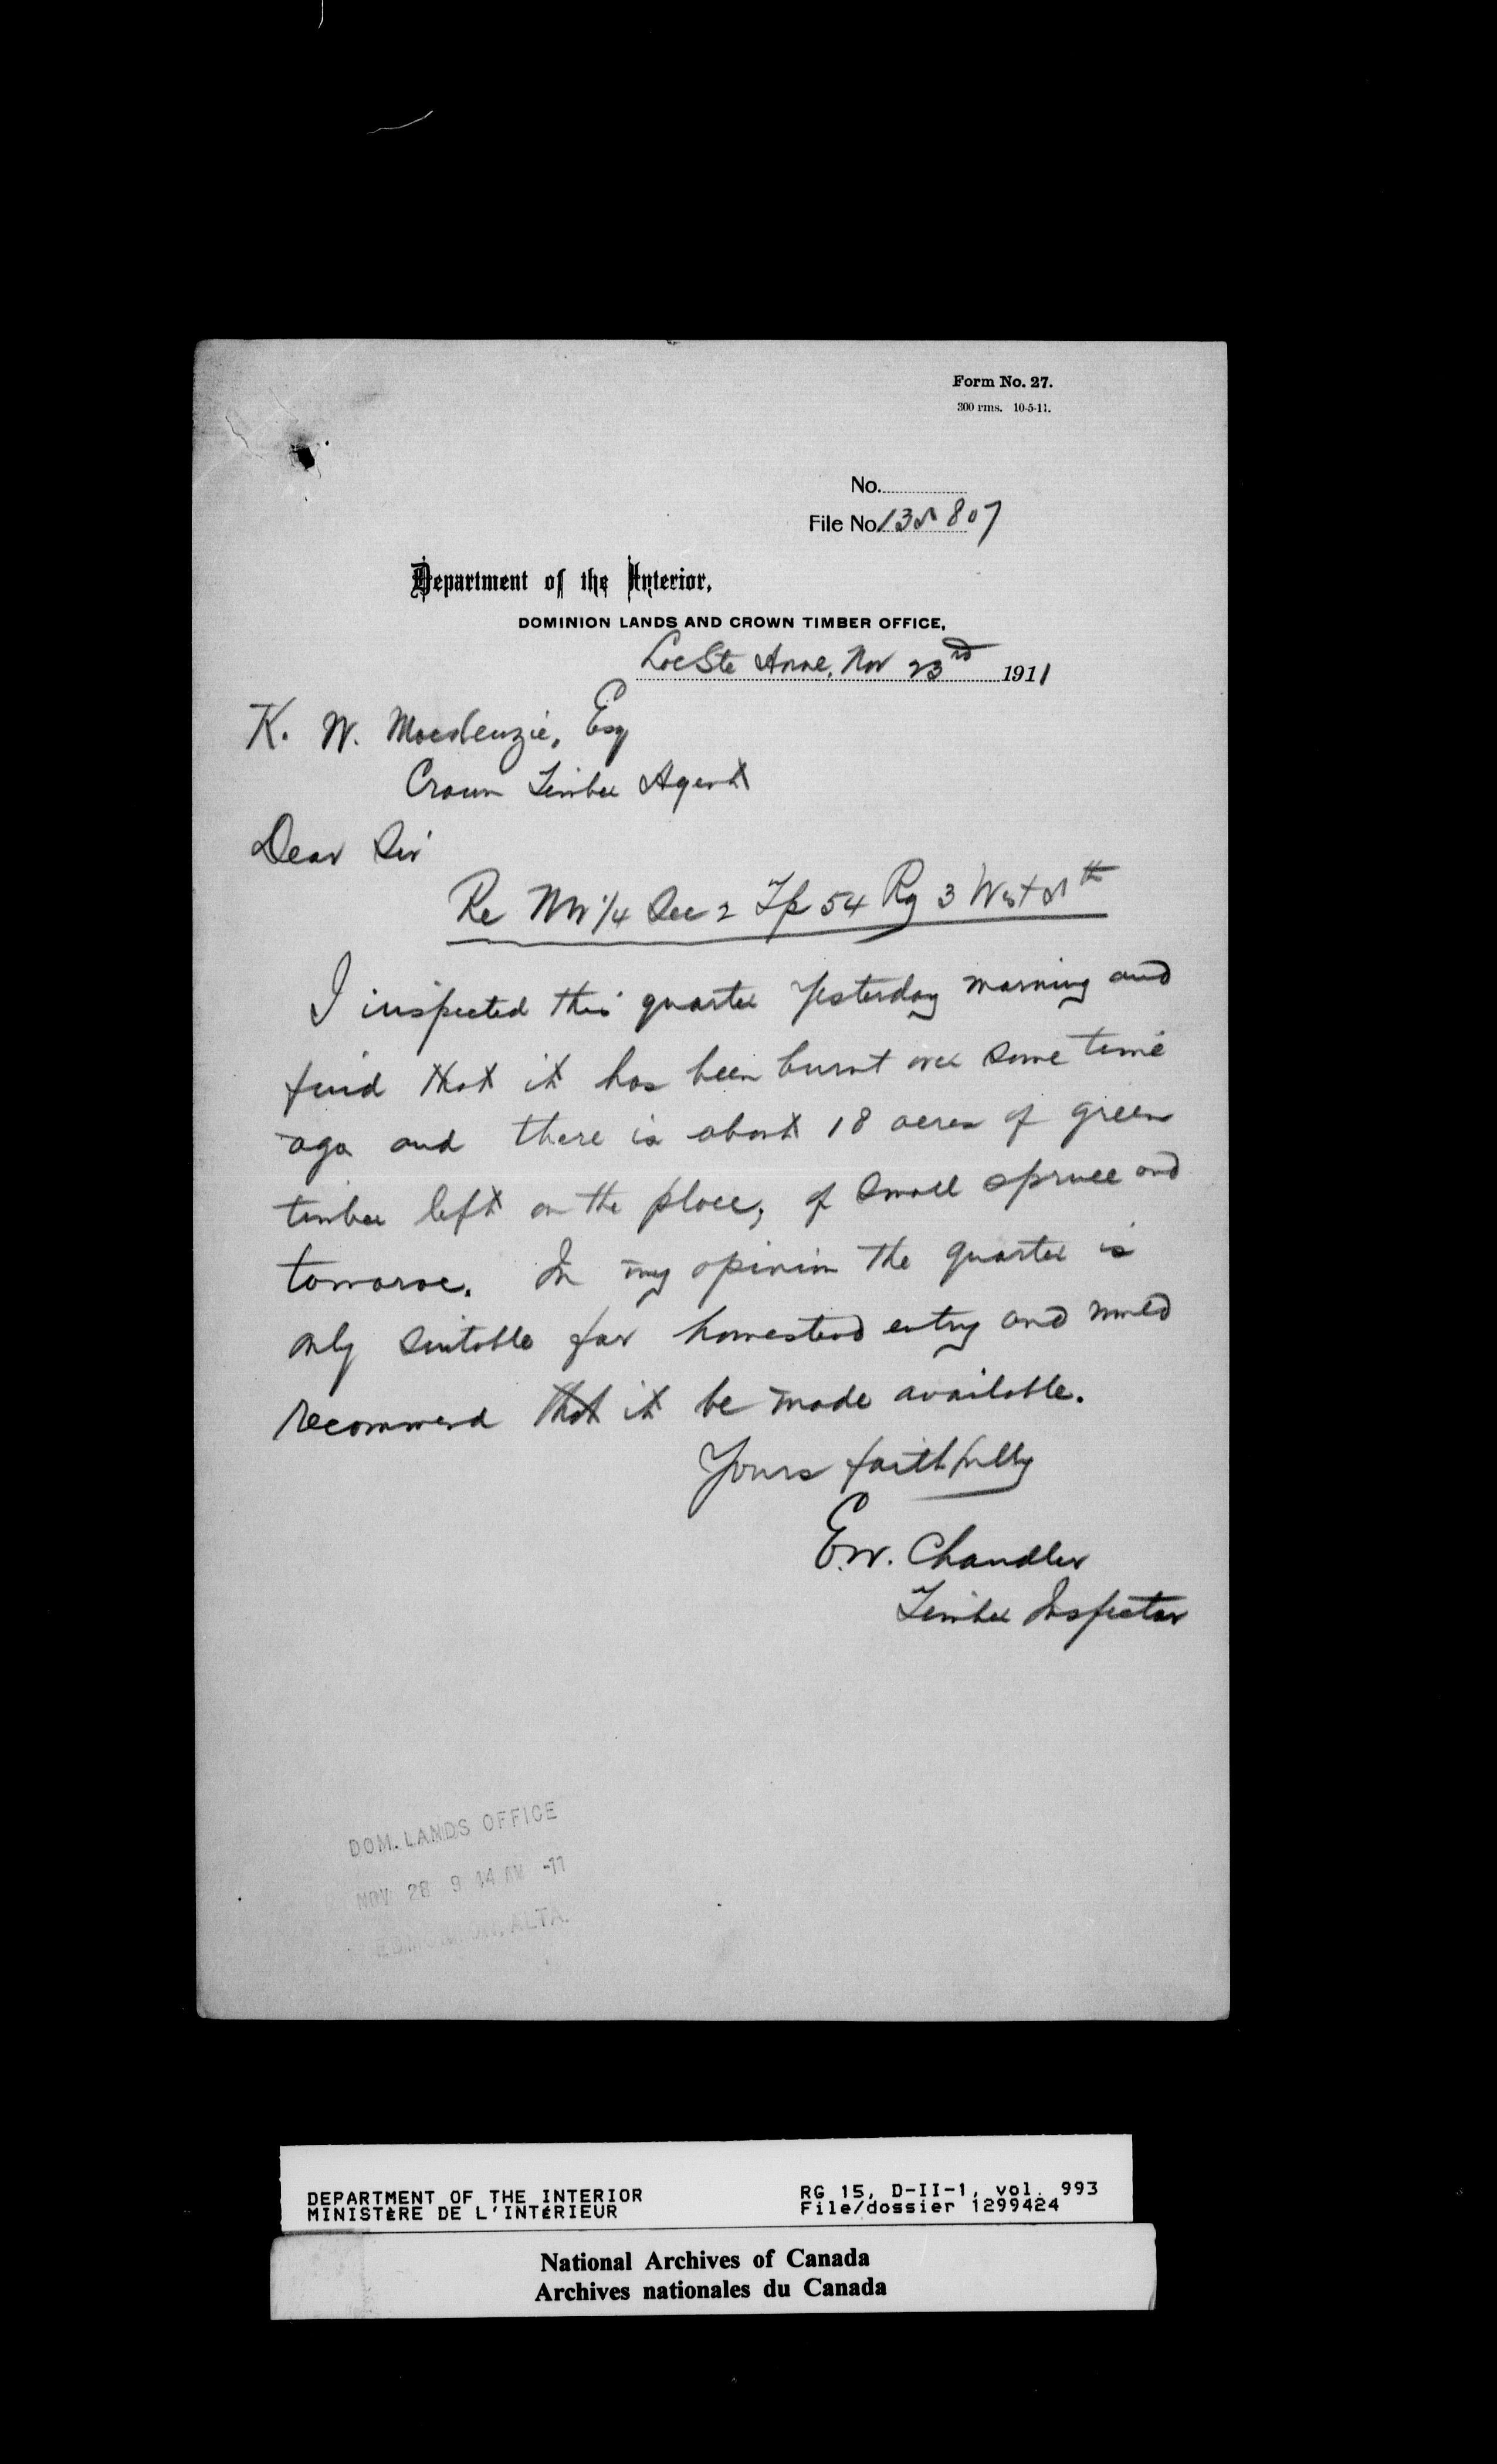 Form No. 27.
300 rms. 10-5-11.
No.
File No. 135807
Department of the Interior,
DOMINION LANDS AND CROWN TIMBER OFFICE,
Lac Ste Anne, Nov 23rd 1911
K. W. MacKenzie, Esq
Crown Timber Agent
Dear Sir
Re NW 1/4 Sec 2 Tp 54 Rg 3 West 5th
I inspected this quarter yesterday morning and
find that it has been burnt over some time
ago and there is about 18 acres of green
timber left on the place, of small spruce and
tamarac. In my opinion the quarter is
only suitable for homestead entry and would
recommend that it be made available.
Yours faithfully
E.W. Chandler
Timber Inspector
DOM. LANDS OFFICE
NOV 28 9 14 AM -11
EDMONTON, ALTA.
DEPARTMENT OF THE INTERIOR RG 15, D-II-1, vol. 993
MINISTÈRE DE L'INTÉRIEUR File/dossier 1299424
National Archives of Canada
Archives nationales du Canada